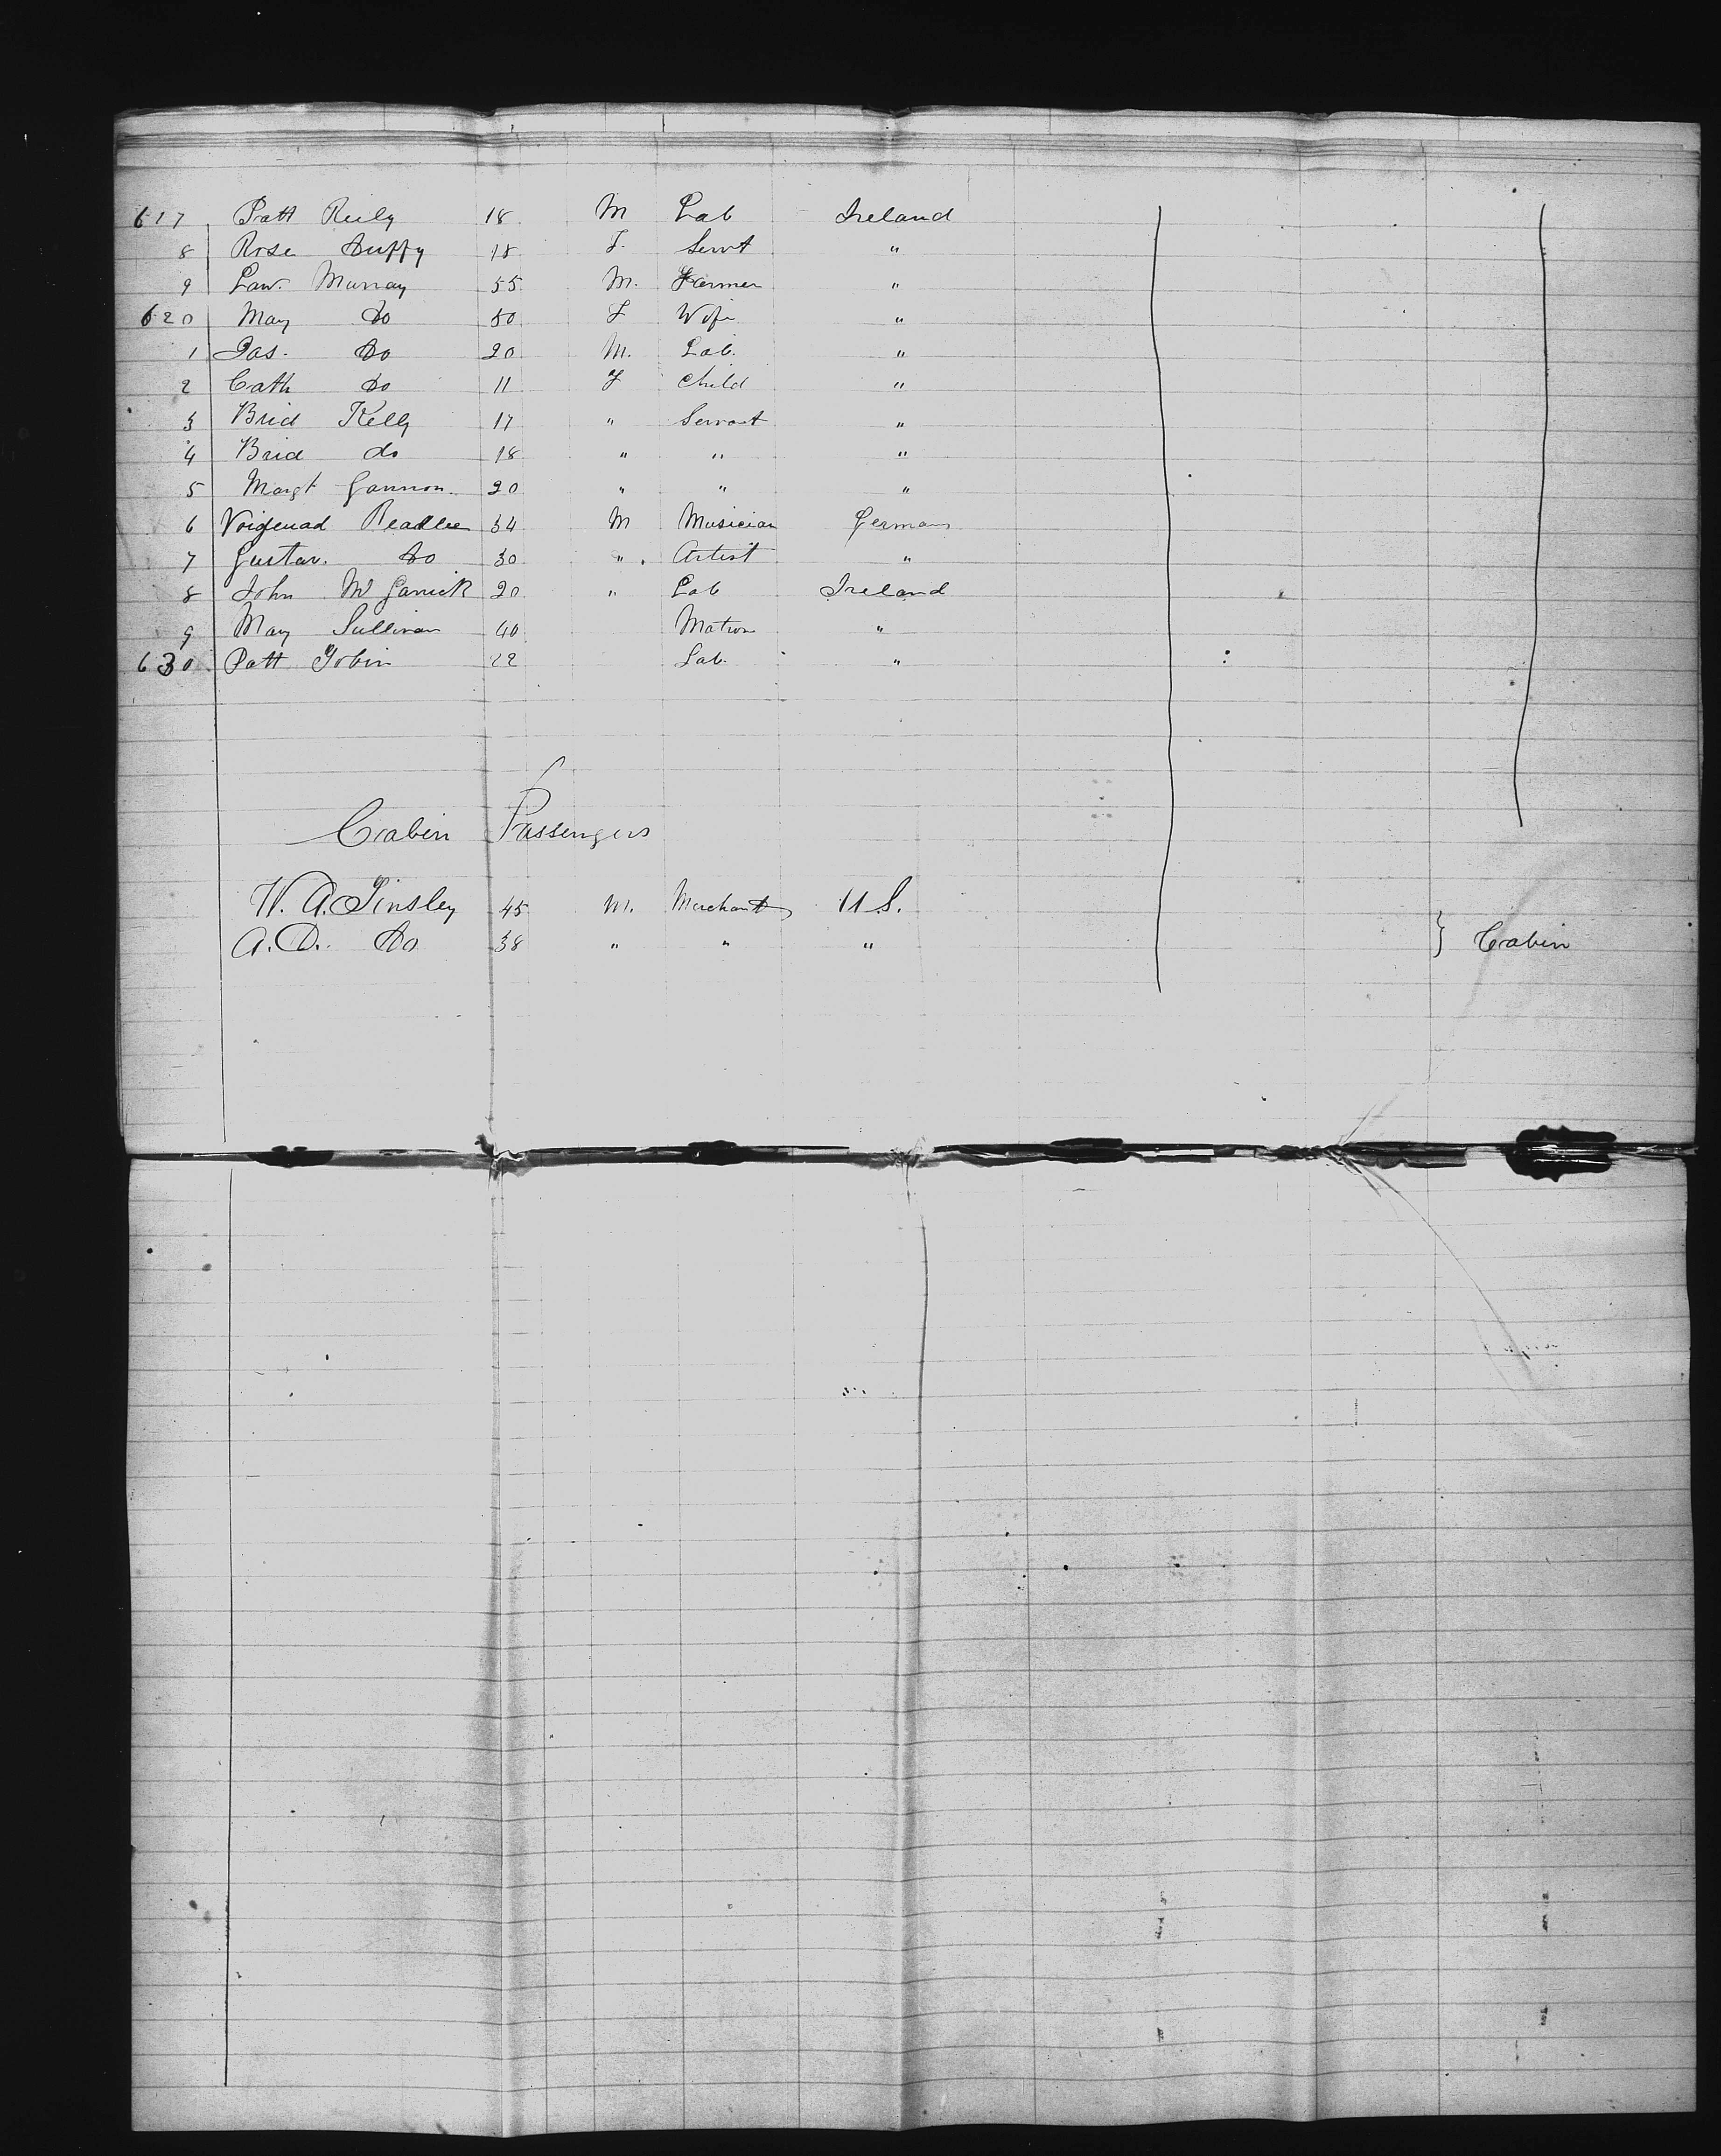 617 Patt Reily 18 M Lab Ireland
8 Rose Duffy 18 F. Servt "
9 Law. Murray 55 M. Farmer "
620 Mary Do 50 F Wife "
1 Jas. Do 20 M. Lab. "
2 Cath Do 11 F Child "
3 Brid Kelly 17 " Servant "
4 Brid do 18 " " "
5 Margt Gannon 20 " " "
6 34 M Musician Germany
7 Gustav. Do 30 " Artist "
8 John Mc Garrick 20 " Lab Ireland
9 Mary Sullivan 40 Matron "
630 Patt Tobin 22 Lab. "
Cabin Passengers
W. A. Tinsley 45 M. Merchant U S.
A. D. Do 38 " " " } Cabin